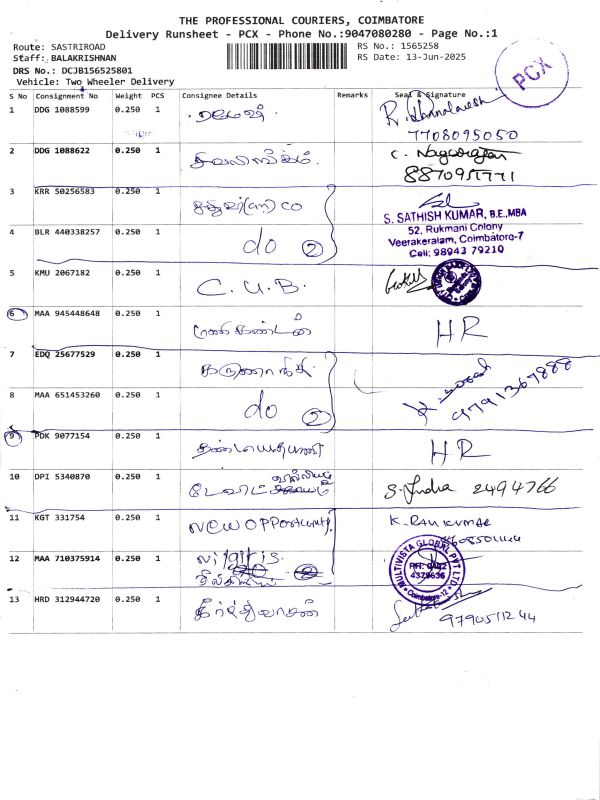 THE PROFESSIONAL COURIERS, COIMBATORE
Delivery Runsheet - PCX - Phone No.:9047080280 - Page No.:1
Route: SASTRIROAD
Staff: BALAKRISHNAN
DRS No.: DCJB156525801
Vehicle: Two Wheeler Delivery
RS No.: 1565258
RS Date: 13-Jun-2025
PCX
S No Consignment No Weight PCS Consignee Details Remarks Seal & Signature
1 DDG 1088599 0.250 1 ரமேஷ்
7708095050
2 DDG 1088622 0.250 1 C. Nagarajan
8870951771
3 KRR 50256583 0.250 1
S. SATHISH KUMAR, B.E.,MBA
52, Rukmani Colony
Veerakeralam, Coimbatore-7
Cell: 98943 79210
4 BLR 440338257 0.250 1 do 2
5 KMU 2067182 0.250 1 C.U.B.
6 MAA 945448648 0.250 1 மணிகண்டன் HR
7 EDQ 25677529 0.250 1
8 MAA 651453260 0.250 1 do 2
9791367888
9 PDK 9077154 0.250 1 HR
10 DPI 5340870 0.250 1 S. Indra 2494766
11 KGT 331754 0.250 1 New Opportunity K. RAVI KUMAR
12 MAA 710375914 0.250 1
MULTIVISTA GLOBAL PVT LTD
PH: 0422
4379636
Coimbatore-12
13 HRD 312944720 0.250 1 கீர்த்திவாசன் 9790511244